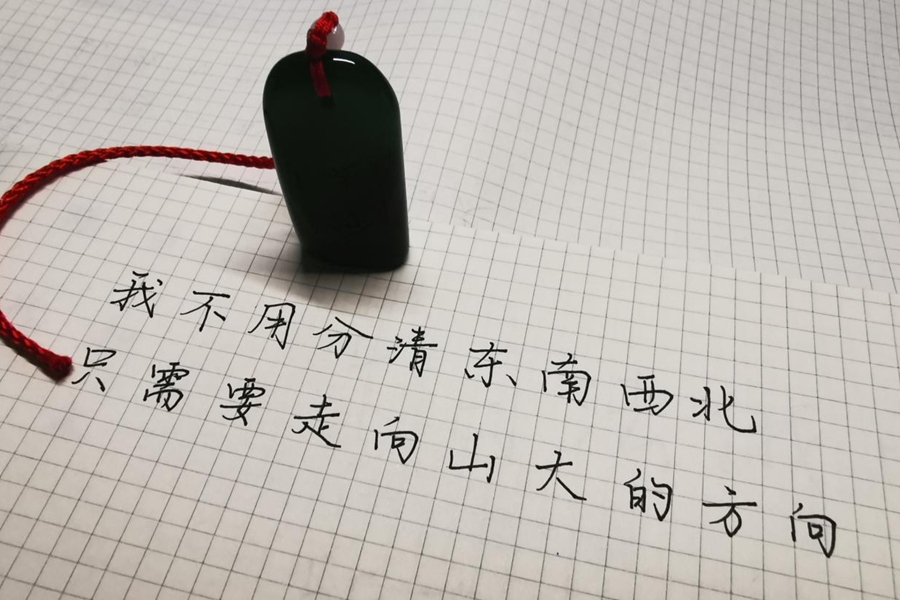 我不用分清东南西北
只需要走向山大的方向